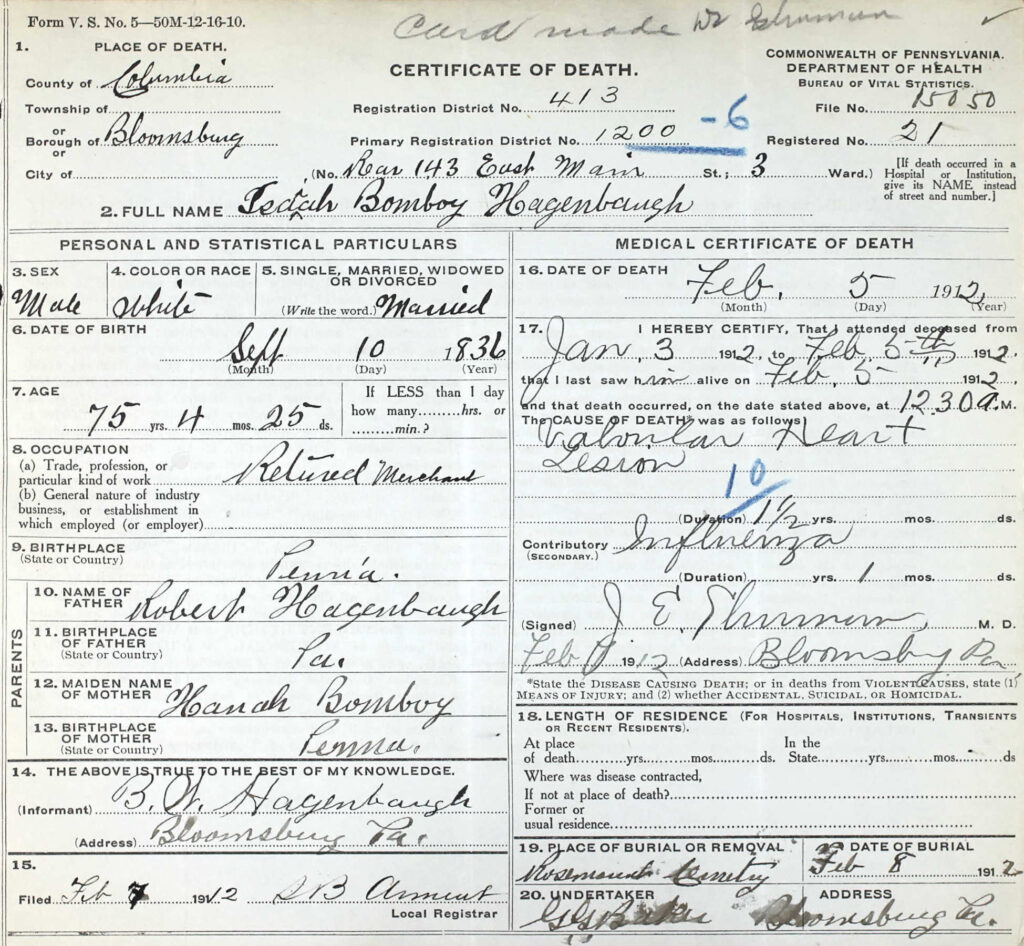 Form V. S. No. 5—50M-12-16-10.
Card made Dr Shuman ✓
1. PLACE OF DEATH.
County of Columbia
Township of
or
Borough of Bloomsburg
or
City of
CERTIFICATE OF DEATH.
Registration District No. 413
Primary Registration District No. 1200 -6
(No. Rear 143 East Main St.; 3 Ward.)
COMMONWEALTH OF PENNSYLVANIA.
DEPARTMENT OF HEALTH
BUREAU OF VITAL STATISTICS.
File No. 15050
Registered No. 21
[If death occurred in a
Hospital or Institution,
give its NAME instead
of street and number.]
2. FULL NAME Isaiah Bomboy Hagenbaugh
PERSONAL AND STATISTICAL PARTICULARS
3. SEX
Male
4. COLOR OR RACE
White
5. SINGLE, MARRIED, WIDOWED
OR DIVORCED
(Write the word.) Married
6. DATE OF BIRTH
Sept 10 1836
(Month) (Day) (Year)
7. AGE
75 yrs. 4 mos. 25 ds.
If LESS than 1 day
how many........hrs. or
..........min.?
8. OCCUPATION
(a) Trade, profession, or
particular kind of work Retired Merchant
(b) General nature of industry
business, or establishment in
which employed (or employer)
9. BIRTHPLACE
(State or Country)
Penn'a.
PARENTS
10. NAME OF
FATHER Robert Hagenbaugh
11. BIRTHPLACE
OF FATHER
(State or Country)
Pa.
12. MAIDEN NAME
OF MOTHER Hanah Bomboy
13. BIRTHPLACE
OF MOTHER
(State or Country) Penna.
14. THE ABOVE IS TRUE TO THE BEST OF MY KNOWLEDGE.
(Informant) B. W. Hagenbaugh
(Address) Bloomsburg Pa.
15.
Filed Feb 7 1912 S B Arment
Local Registrar
MEDICAL CERTIFICATE OF DEATH
16. DATE OF DEATH
Feb. 5 1912
(Month) (Day) (Year)
17. I HEREBY CERTIFY, That I attended deceased from
Jan. 3 1912, to Feb. 5th 1912,
that I last saw him alive on Feb. 5 1912,
and that death occurred, on the date stated above, at 12.30 A.M.
The CAUSE OF DEATH* was as follows:
Valvular Heart
Lesion
10
(Duration) 1 1/2 yrs. mos. ds.
Contributory Influenza
(SECONDARY.)
(Duration) yrs. 1 mos. ds.
(Signed) J. E. Shuman, M. D.
Feb 1912 (Address) Bloomsburg Pa
*State the DISEASE CAUSING DEATH; or in deaths from VIOLENT CAUSES, state (1)
MEANS OF INJURY; and (2) whether ACCIDENTAL, SUICIDAL, OR HOMICIDAL.
18. LENGTH OF RESIDENCE (FOR HOSPITALS, INSTITUTIONS, TRANSIENTS
OR RECENT RESIDENTS).
At place In the
of death........yrs........mos........ds. State........yrs........mos........ds
Where was disease contracted,
If not at place of death?
Former or
usual residence
19. PLACE OF BURIAL OR REMOVAL
Rosemount Cemetry
DATE OF BURIAL
Feb 8 1912
20. UNDERTAKER
G G Baker
ADDRESS
Bloomsburg Pa.